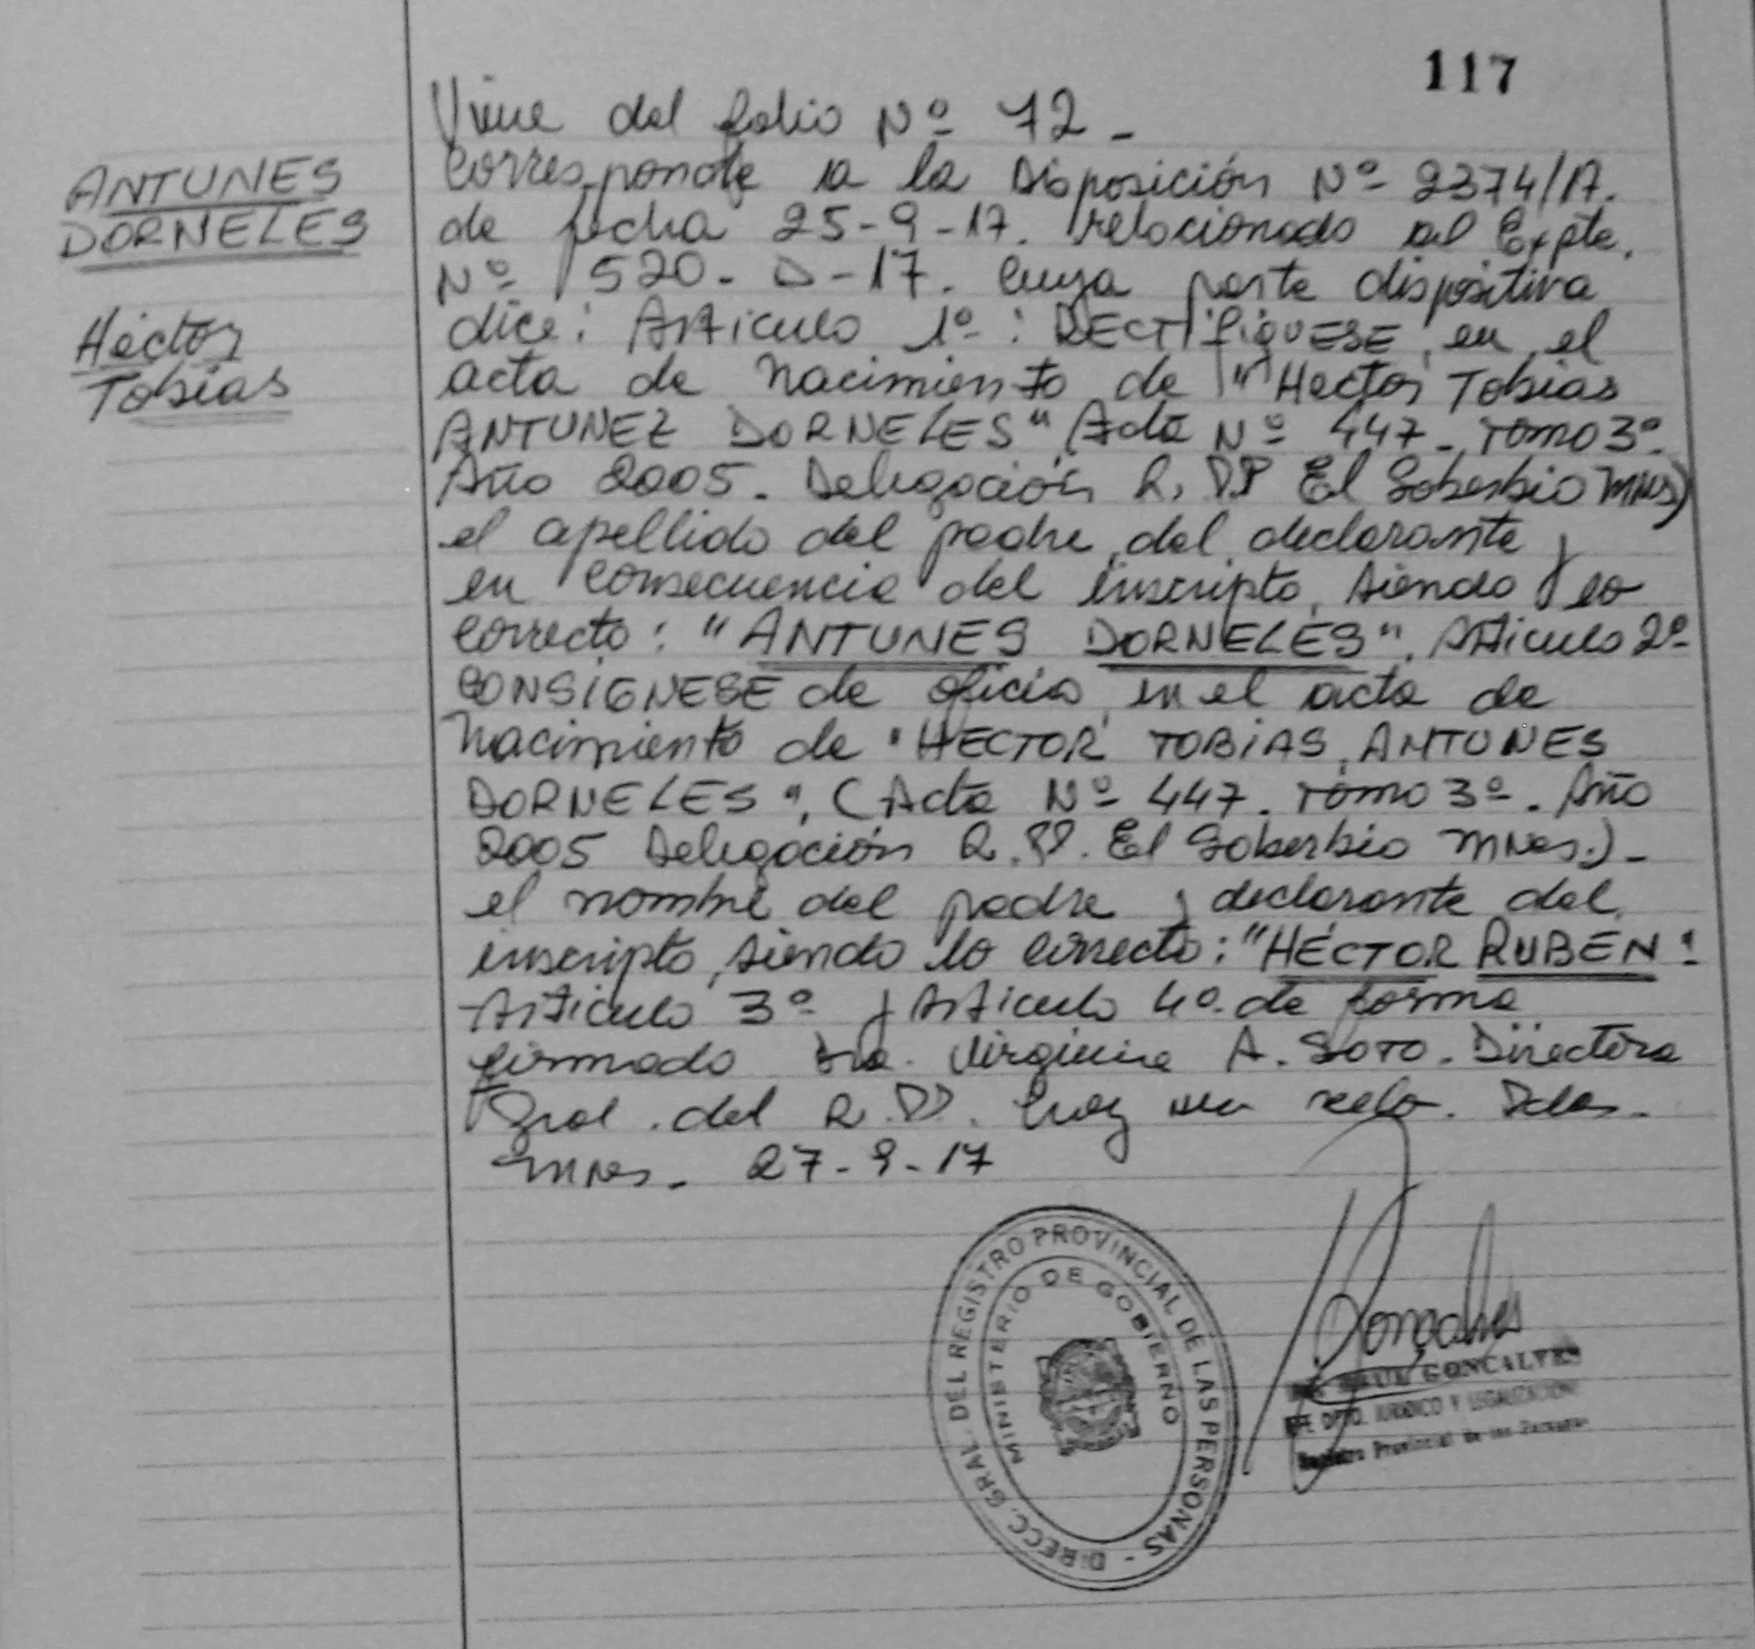 117
ANTUNES
DORNELES
Héctor
Tobias
Viene del folio Nº 72 -
Corresponde a la Disposición Nº 2374/17.
de fecha 25-9-17. relacionado al Expte.
Nº 1520-D-17. Cuya parte dispositiva
dice: Articulo 1º: RECTIFIQUESE, en el
acta de nacimiento de "Hector Tobias
ANTUNEZ DORNELES" (Acta Nº 447 - Tomo 3º -
Año 2005 - Delegación R. PP El Soberbio Mnes)
el apellido del padre, del declarante y
en consecuencia del inscripto, siendo lo
correcto: "ANTUNES DORNELES". Articulo 2º
CONSIGNESE de oficio en el acta de
nacimiento de "HECTOR TOBIAS ANTUNES
DORNELES", (Acta Nº 447. Tomo 3º. Año
2005 Delegación R.PP. El Soberbio Mnes.) -
el nombre del padre y declarante del
inscripto, siendo lo correcto: "HÉCTOR RUBEN".
Articulo 3º y Articulo 4º de forma
firmado Dra. Virginia A. SOTO. Directora
Gral. del R.PP. Hay un sello. Pdas.
Mnes. 27-9-17
DIRECC. GRAL. DEL REGISTRO PROVINCIAL DE LAS PERSONAS -
MINISTERIO DE GOBIERNO
Gonçalves
GONCALVES
DPTO. JURIDICO Y LEGALIZACIONES
Registro Provincial de las Personas